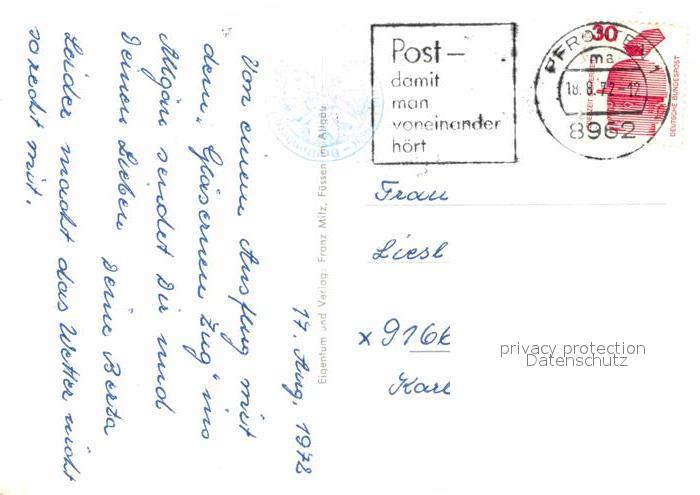 17. Aug. 1972
Von einem Ausflug mit
dem „Gläsernen Zug" ins
Allgäu sendet Dir und
Deinen Lieben Deine Berta
Leider macht das Wetter nicht
so recht mit.
Eigentum und Verlag: Franz Milz, Füssen im Allgäu
Post –
damit
man
voneinander
hört
PFRONTEN 1
ma
18.8.72-12
8962
30
DEUTSCHE BUNDESPOST
Frau
Liesl
x 916
Karl
privacy protection
Datenschutz